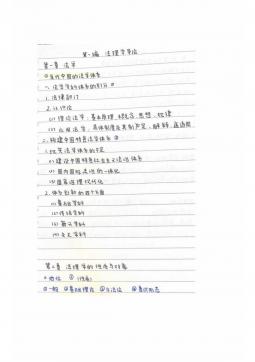 第一编 法理学导论
第一章 法学
当代中国的法学体系
一、法学学科体系的划分
1. 法律部门
2. 认识论
(1) 理论法学：基本原理、概念、思想、规律
(2) 应用法学：具体制度及其制定、解释、适用
二、构建中国特色法学体系
1. 优化法学体系的
(1) 建设中国特色社会主义法治体系
(2) 国内国际法治的一体化
(3) 国家治理现代化
2. 体系创新的四个方面
(1) 基础学科
(2) 传统学科
(3) 新兴学科
(4) 交叉学科
第二章 法理学的性质与对象
①一般 ②基础理论 ③方法论 ④意识形态